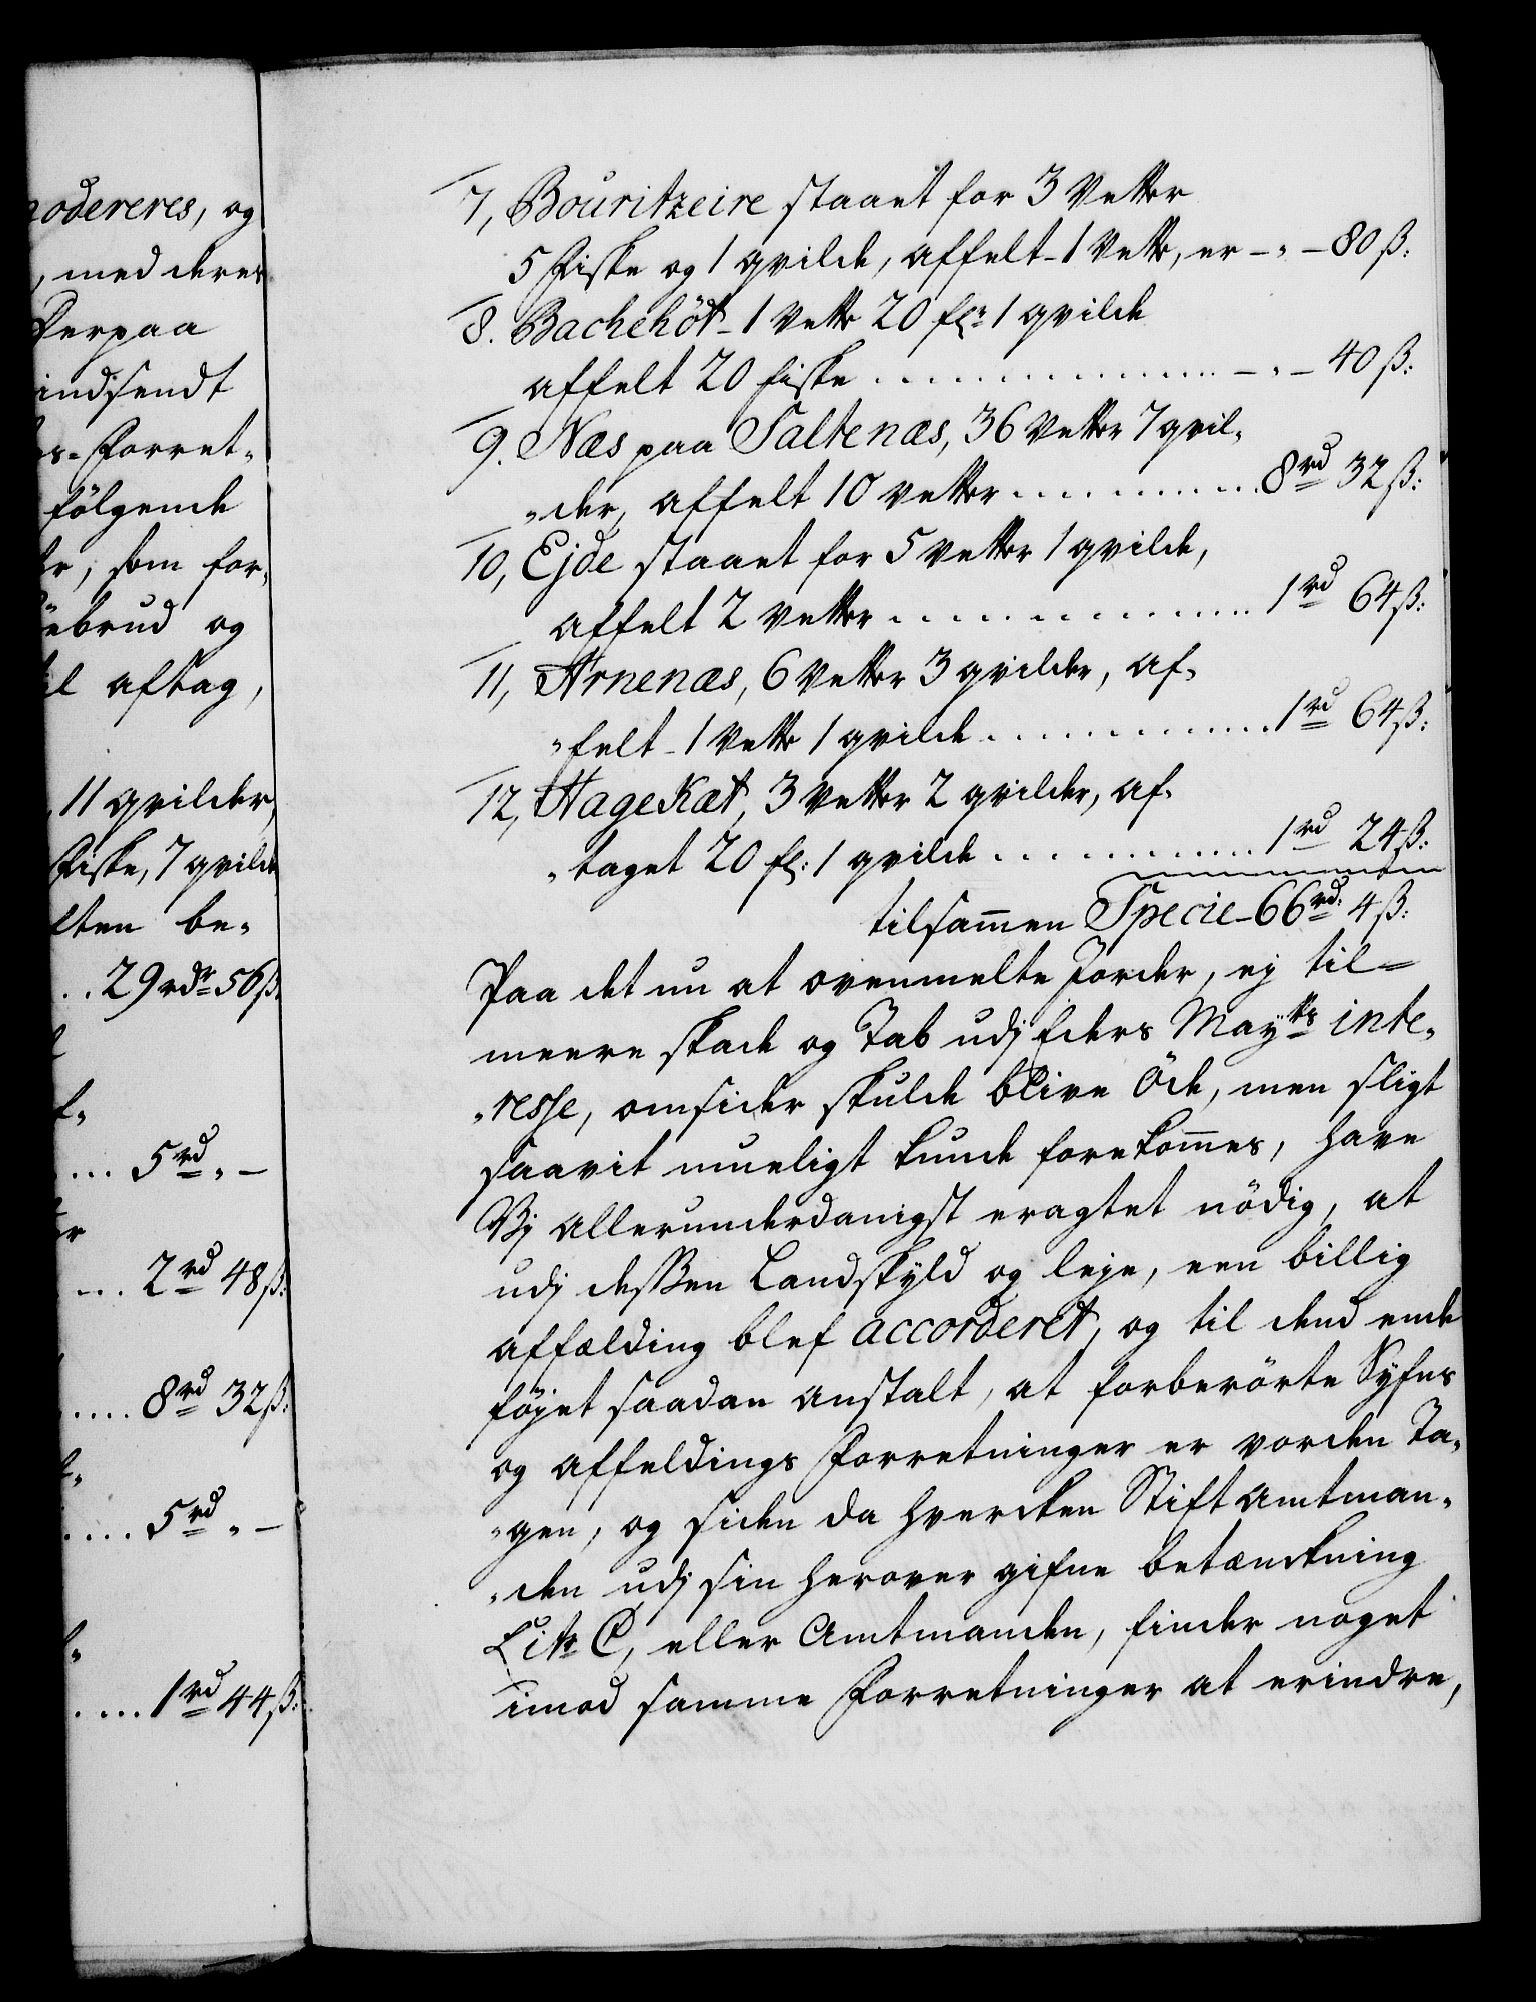 odereres, og
, med deres
Derpaa
indsendt
s-Forret„
følgende
r, som for„
ebrud og
l aftag,
11 qvilder,
Fiske, 7 qvilde
lten be„
. . 29 rdr 56 ß.
f„
... 5 rd „ –
... 2 rd 48 ß:
.... 8 rd 32 ß:
.... 5 rd „ –
.... 1 rd 44 ß:
7, Bouritzeire staaet for 3 Vetter
5 Fiske og 1 qvilde, affelt - 1 Vett, er – „ – 80 ß:
8. Bachehöt - 1 Vett 20 fl: 1 qvilde
affelt 20 fiske . . . . . . . . . . . . – „ – 40 ß:
9. Næs paa Saltenæs, 36 Vetter 7 qvil„
„der, affelt 10 vetter . . . . . . . . . 8 rd 32 ß:
10, Ejde staaet for 5 vetter 1 qvilde,
affelt 2 vetter . . . . . . . . . . . . 1 rd 64 ß:
11, Arnenæs, 6 Vetter 3 qvilder, af„
„felt - 1 Vett 1 qvilde . . . . . . . . . 1 rd 64 ß:
12, Hagekæt, 3 vetter 2 qvilder, af„
„taget 20 fl: 1 qvilde . . . . . . . . . 1 rd 24 ß:
tilsam̅en Specie - 66 rd: 4 ß:
Paa det nu at ovenmelte Jorder, ej til=
meere skade og Tab udj Eders Mayts inte„
„resse, omsider skulde blive Öde, men sligt
saavit mueligt kunde forekom̅es, have
Vj allerunderdanigst eragtet nödig, at
udj dessen Landskyld og leje, een billig
affælding blef accorderet, og til dend ende
föyet saadan anstalt, at forberörte Syfns
og affeldings Forretninger er vorden Ta„
„gen, og siden da hvercken Stiftamtman„
„den udj sin herover gifne betænckning
Litr C, eller Amtmanden, finder noget
imod samme Forretninger at erindre,